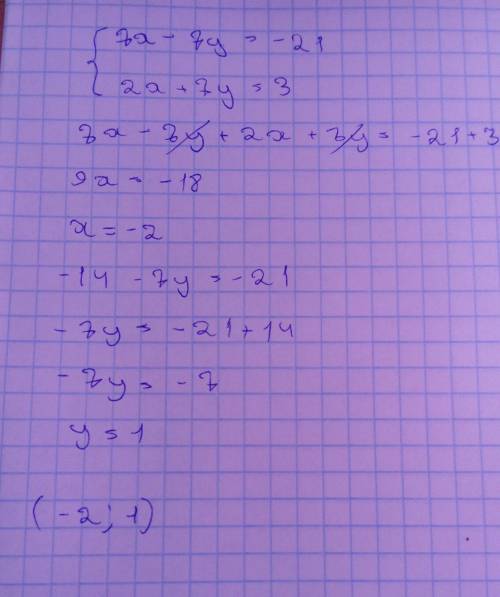 7x - 7y = -21
2x + 7y = 3
7x - 7y + 2x + 7y = -21 + 3
9x = -18
x = -2
-14 - 7y = -21
-7y = -21 + 14
-7y = -7
y = 1
(-2; 1)